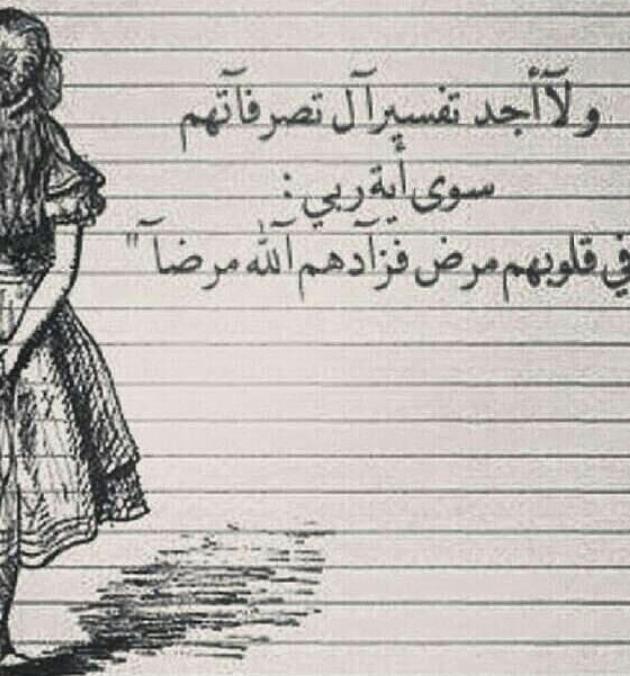 ولآأجد تفسيرآل تصرفآتهم
سوى أية ربي :
في قلوبهم مرض فزآدهم آلله مرضآ "